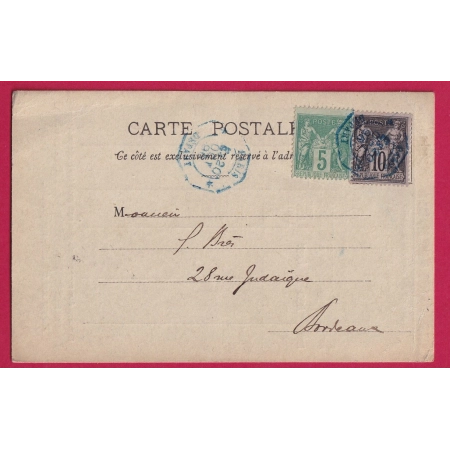 CARTE POSTALE
Ce côté est exclusivement réservé à l'adr
POSTE
5
10
Monsieur
28 rue Judaïque
Bordeaux